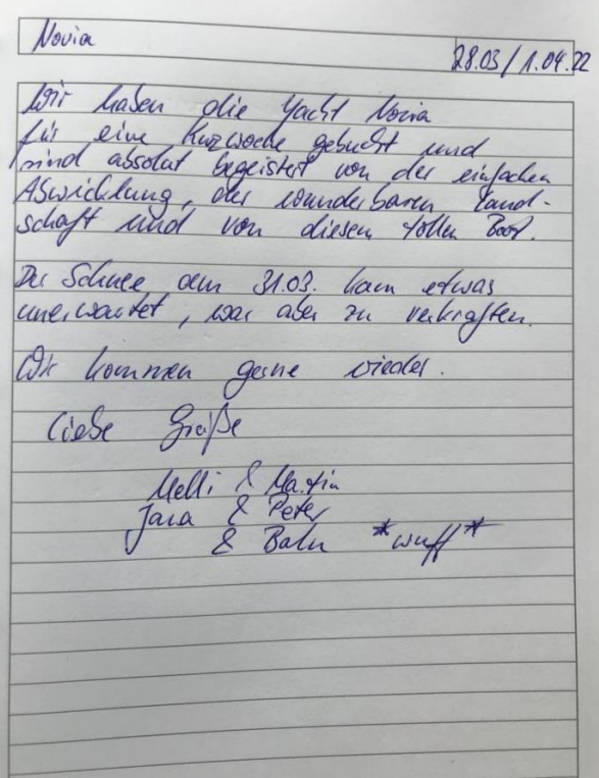 Novia
28.03/1.04.22
Wir haben die Yacht Novia
für eine Kurzwoche gebucht und
sind absolut begeistert von der einfachen
Abwicklung, der wunderbaren Land-
schaft und von diesem tollen Boot.
Der Schnee am 31.03. kam etwas
unerwartet, war aber zu verkraften.
Wir kommen gerne wieder.
Liebe Grüße
Melli & Martin
Jana & Peter
& Balu *wuff*